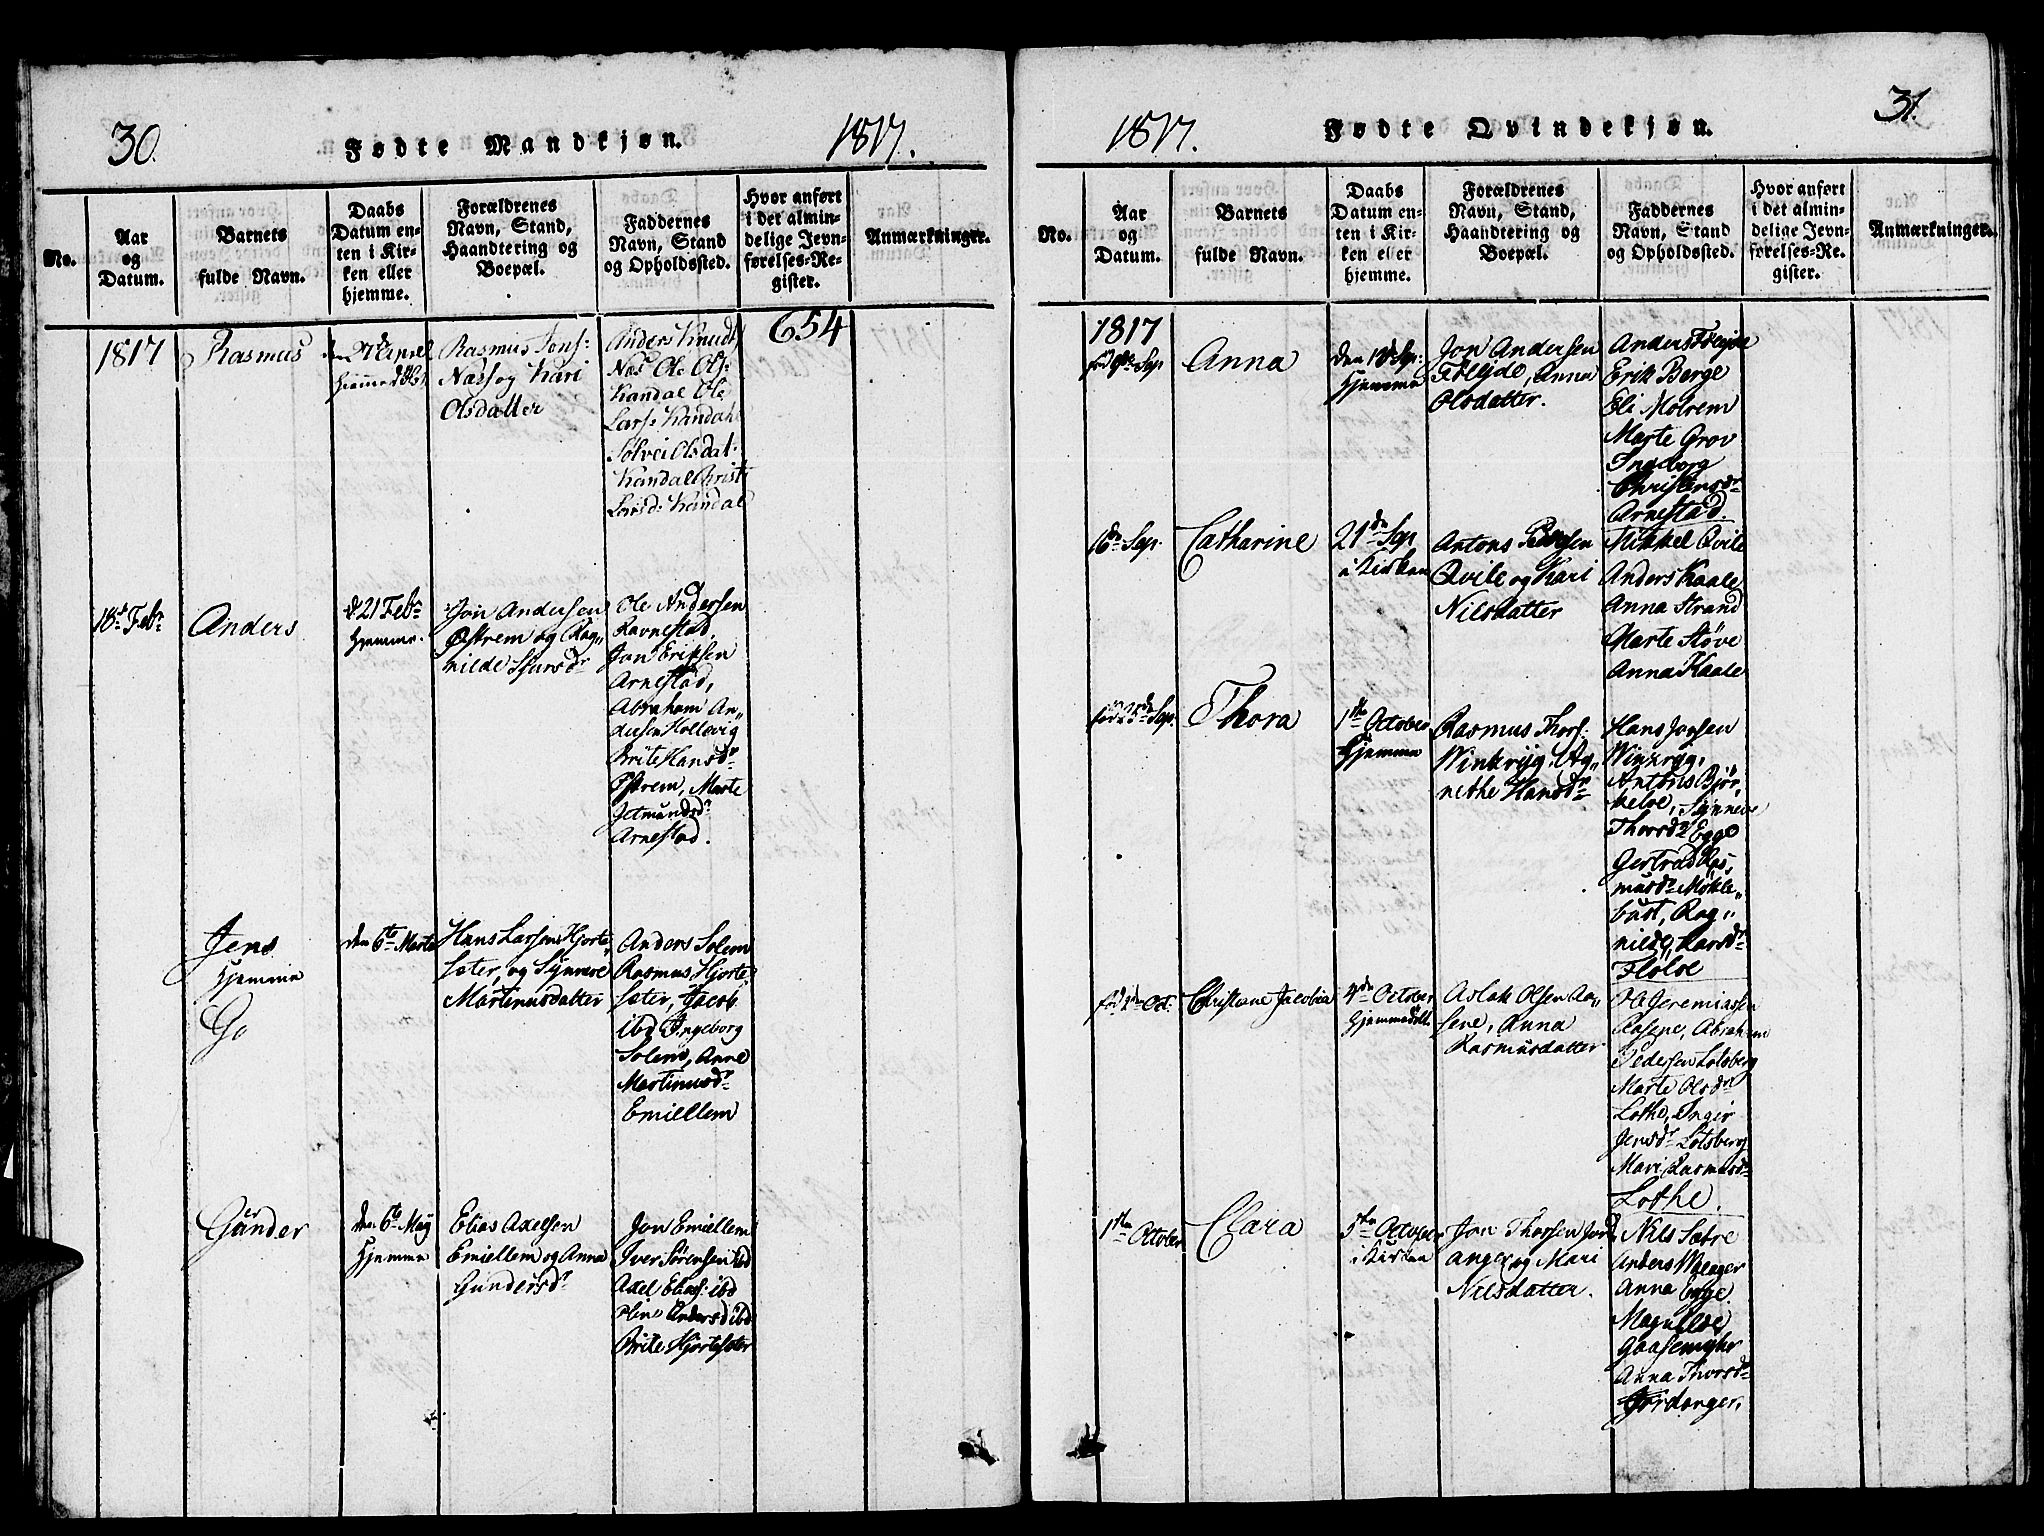 30.
Fødte Mandkjøn.
1817.
No.
Aar
og
Datum.
Barnets
fulde Navn.
Daabs
Datum en-
ten i Kir-
ken eller
hjemme.
Forældrenes
Navn, Stand,
Haandtering og
Boepæl.
Faddernes
Navn, Stand
og Opholdssted.
Hvor anført
i det almin-
delige Jevn-
førelses-Re-
gister.
Anmærkninger.
1817
Rasmus
Rasmus Jons:
Næs og Kari
Olsdatter
Anders Knudt
Næs Ole Ols:
Kandal Ole
Lars: Kandal
Sølvei Olsdat:
Kandal Brist
Larsd: Kandal
654
18de Febr
Anders
d 21 Febr
Hjemme.
Jon Andersen
Østrem og Rag„
nilde Sjursdr
Ole Andersen
Ravnestad,
Jon Eriksen
Arnestad,
Abraham An„
dersen Hollevig
Brite Hansdr
Østrem, Marte
Jetmundsdr
Arnestad.
Jens
Hjemme
Go
den 6te Marts
Hans Larsen Hjorte„
sæter, og Synneve
Martinusdatter
Anders Solem
Rasmus Hjorte
sæter, Jacob
ibd Ingeborg
Solem, Anne
Martinusdr
Emiellem
Gunder
den 6te Maj
Hjemme
Elias Axelsen
Emiellem og Anna
Gundersdr
Jon Emiellem
Iver Sørensen ibd
Axel Elias: ibd
Andersd ibd
Brite Hjortesæter
1817.
Fødte Qvindekjøn.
31.
No.
Aar
og
Datum.
Barnets
fulde Navn.
Daabs
Datum en-
ten i Kir-
ken eller
hjemme.
Forældrenes
Navn, Stand,
Haandtering og
Boepæl.
Faddernes
Navn, Stand
og Opholdssted.
Hvor anført
i det almin-
delige Jevn-
førelses-Re-
gister.
Anmærkninger.
1817
Anna
Hjemme
Jon Andersen
Føleide, Anna
Olsdatter.
Anders Føleide
Erik Berge
Eli Molrem
Marte Grov
Ingeborg
Christensdr
Arnestad.
16de Sep.
Catharine
21de Sep
i Kirken
Antons Pedersen
Qvile og Kari
Nilsdatter
Mikkel Qvile
Anders Kaale
Anna Strand
Marte Støve
Anna Kaale
fød 25de Sep.
Thora
1ste October
Hjemme
Rasmus Thors:
Winkrijg, Ag„
nethe Hansdr
Hans Jonsen
Winkrijg,
Antonis Bjør„
kelve, Synneve
Thorsdr Egge
Gertrud Ras„
musdr Møkle„
bust, Rag„
nilde, Larsdr
Fløloe
Christiane Jacobia
4de October
Hjemmedøbt.
Aslak Olsen Aa„
sene, Anna
Rasmusdatter
Ole Jeremiassen
Aasene, Abraham
Pedersen Lotsberg
Marte Olsdr
Lothe, Inger
Jensdr Lotsberg
Mari Rasmusdr
Lothe.
1ste October
Clara
5te October
i Kirken
Jon Thorsen Jord„
anger og Mari
Nilsdatter.
Nils Sætre
Anders Weager
Anna Egge.
Magnilde
Gaasemyhr
Anna Thorsdr
Jordanger.